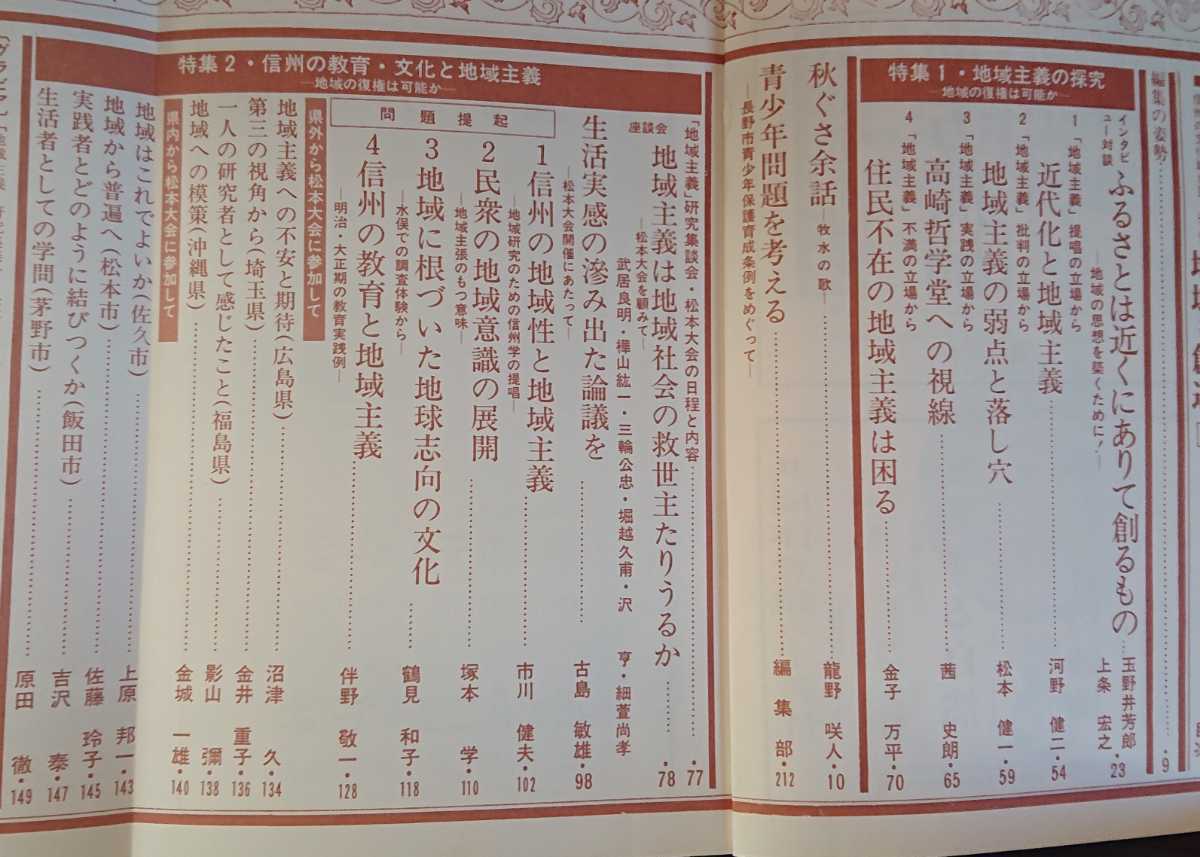 編集の姿勢 9
特集1・地域主義の探究
―地域の復権は可能か―
インタビュー対談
ふるさとは近くにありて創るもの 玉野井芳郎 上条 宏之・23
―地域の思想を築くために!―
1 「地域主義」提唱の立場から
近代化と地域主義 河野 健二・54
2 「地域主義」批判の立場から
地域主義の弱点と落し穴 松本 健一・59
3 「地域主義」実践の立場から
高崎哲学堂への視線 茜 史朗・65
4 「地域主義」不満の立場から
住民不在の地域主義は困る 金子 万平・70
秋ぐさ余話―牧水の歌― 龍野 咲人・10
青少年問題を考える 編集部・212
―長野市青少年保護育成条例をめぐって―
特集2・信州の教育・文化と地域主義
―地域の復権は可能か―
「地域主義」研究集談会・松本大会の日程と内容 ・77
座談会
地域主義は地域社会の救世主たりうるか ・78
―松本大会を顧みて―
武居良明・樺山紘一・三輪公忠・堀越久甫・沢 亨・細萱尚孝
生活実感の滲み出た論議を 古島 敏雄・98
―松本大会開催にあたって―
問題提起
1 信州の地域性と地域主義 市川 健夫・102
―地域研究のための信州学の提唱―
2 民衆の地域意識の展開 塚本 学・110
―地域主張のもつ意味―
3 地域に根づいた地球志向の文化 鶴見 和子・118
―水俣での調査体験から―
4 信州の教育と地域主義 伴野 敬一・128
―明治・大正期の教育実践例―
県外から松本大会に参加して
地域主義への不安と期待(広島県) 沼津 久・134
第三の視角から(埼玉県) 金井 重子・136
一人の研究者として感じたこと(福島県) 影山 彌・138
地域への模策(沖縄県) 金城 一雄・140
県内から松本大会に参加して
地域はこれでよいか(佐久市) 上原 邦一・143
地域から普遍へ(松本市) 佐藤 玲子・145
実践者とどのように結びつくか(飯田市) 吉沢 泰・147
生活者としての学問(茅野市) 原田 徹・149